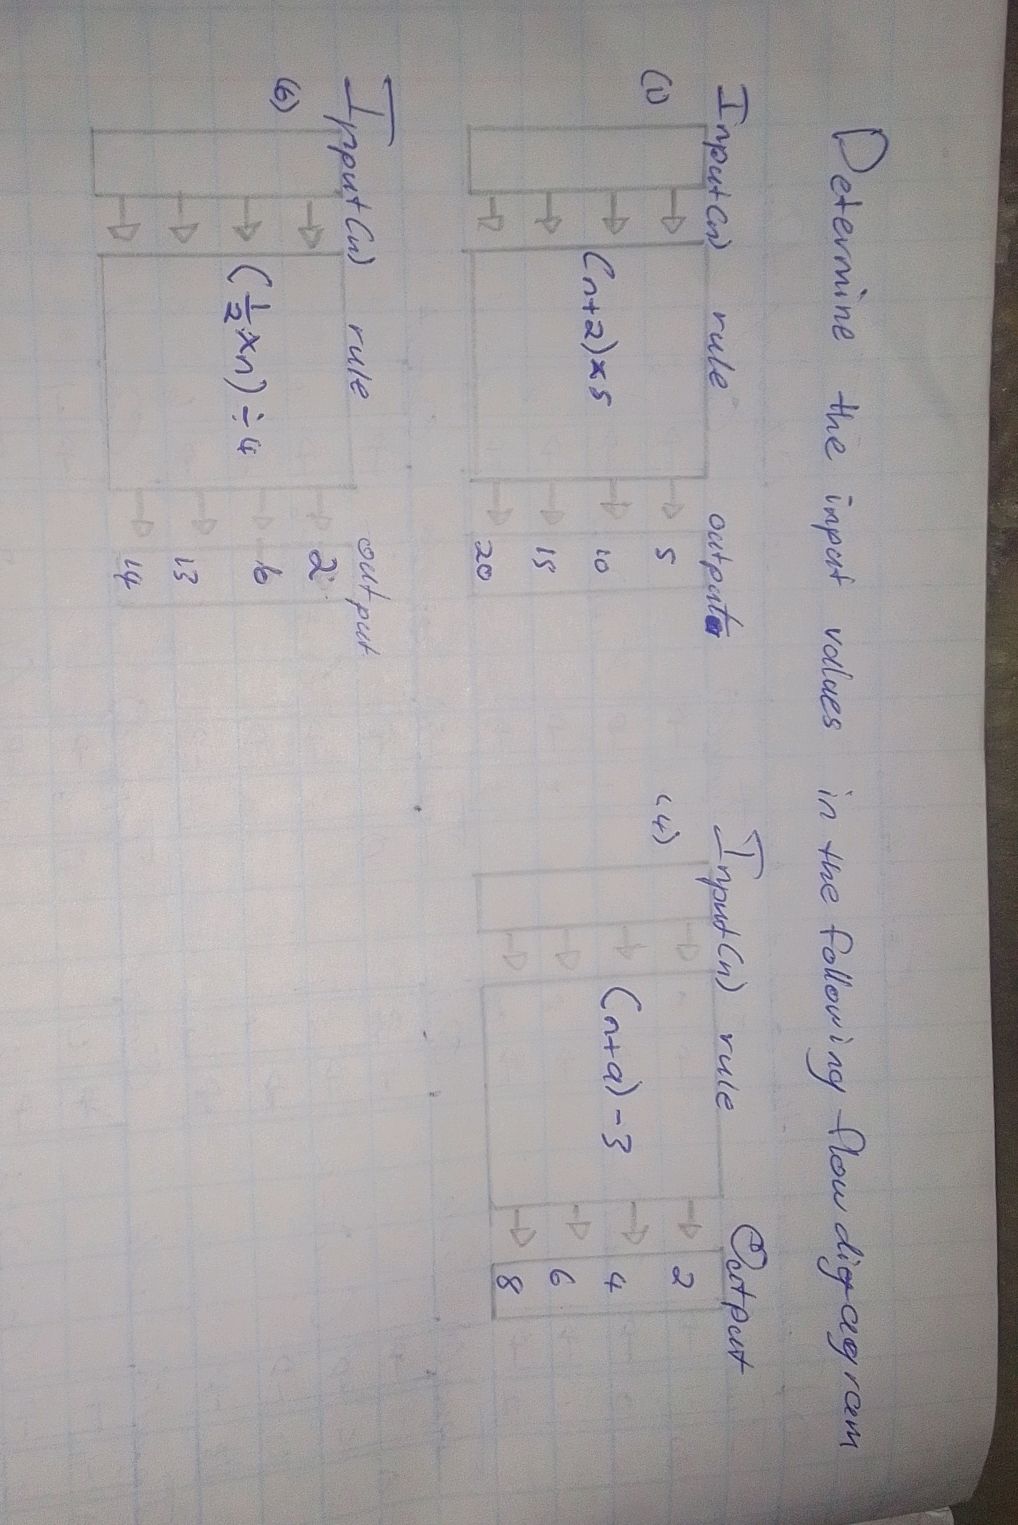 Determine the input values in the following flow diagagram
Input(n) rule output
(1)
(n+2)×5
5
10
15
20
Input(n) rule Output
(4)
(n+a)-3
2
4
6
8
Input(n) rule output
(6)
(1/2×n)÷4
2
6
13
14